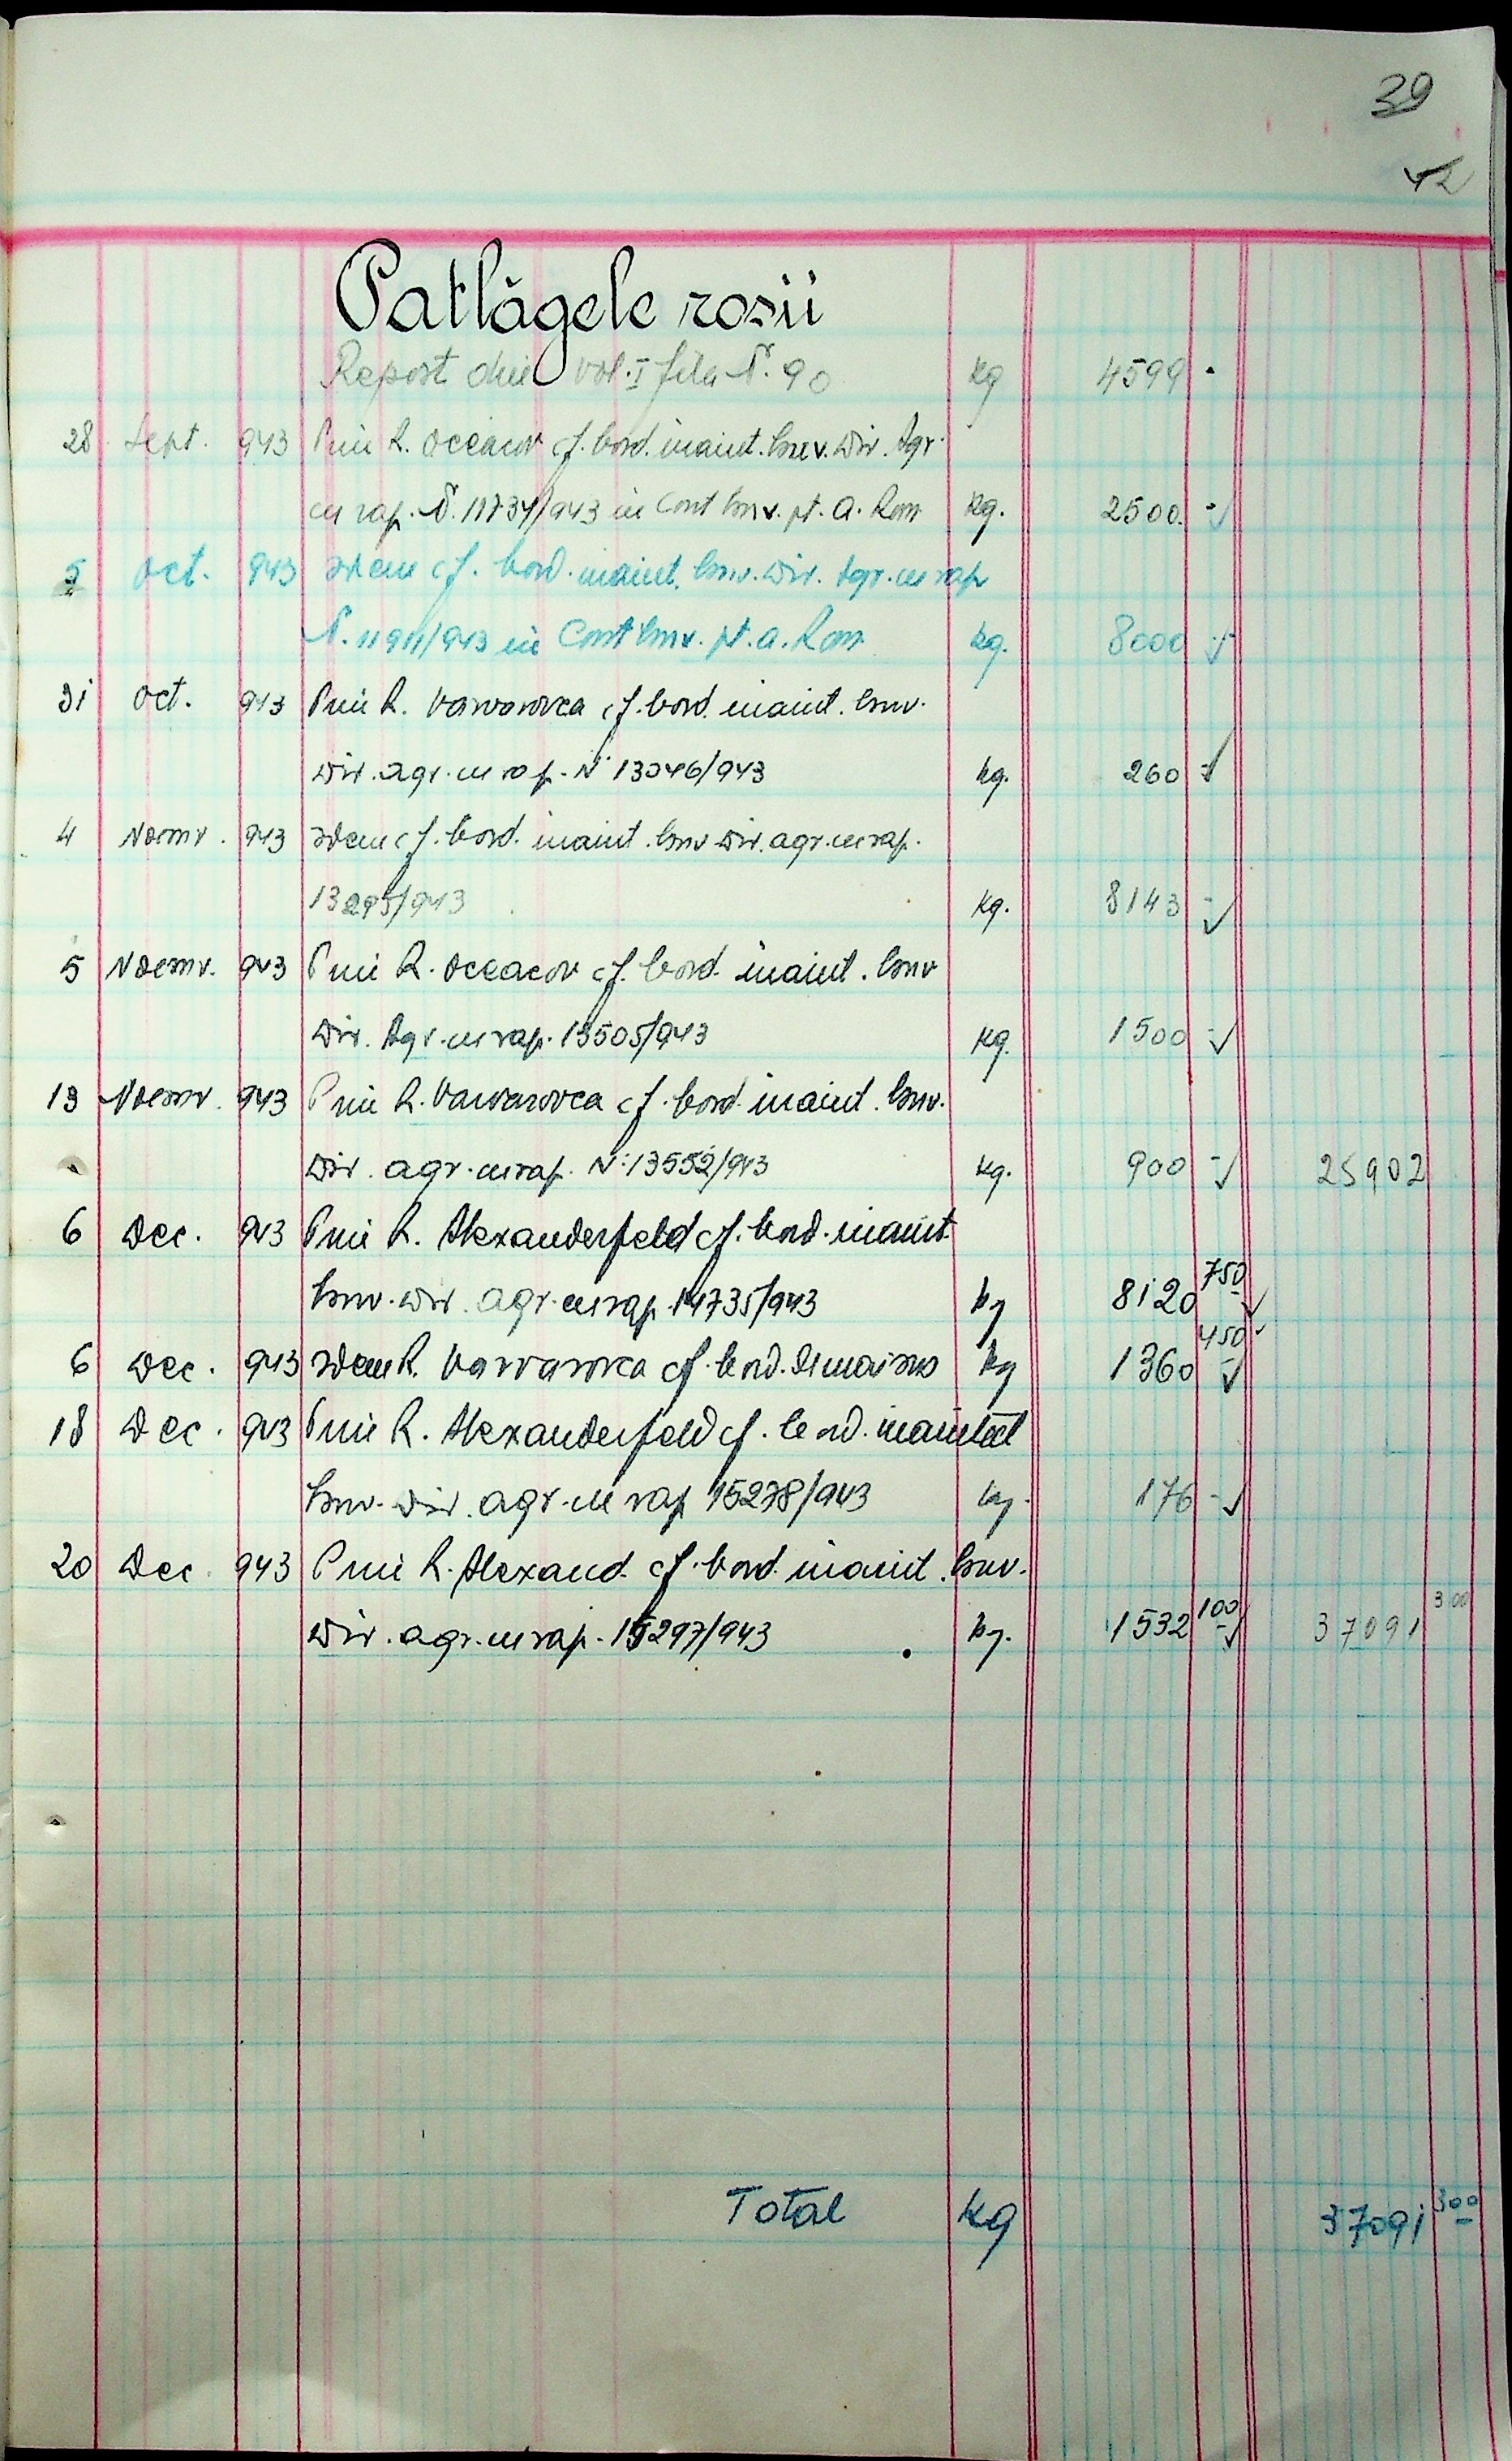 39
42
Patlăgele rosii
Report din vol. I fila N. 90 kg 4599 -
28 Sept. 943 Prin R. Oceacov cf. bord. inaint. Guv. Dir. Agr.
cu rap. N. 11734/943 in Cont Guv. pt. A. Rom kg. 2500. -
5 Oct. 943 Idem cf. bord. inaint. Guv. Dir. Agr. cu rap
N. 11911/943 in Cont Guv. pt. a. Rom kg. 8000 -
31 Oct. 943 Prin R. Varvarovca cf. bord. inaint. Guv.
Dir. agr. cu rap. N° 13046/943 kg. 260 -
4 Noemv. 943 Idem cf. bord. inaint. Guv Dir. agr. cu rap.
13295/943 kg. 8143 -
5 Noemv. 943 Prin R. Oceacov cf. bord. inaint. Guv
Dir. Agr. cu rap. 13505/943 kg. 1500 -
13 Noemv. 943 Prin R. Varvarovca cf. bord. inaint. Guv.
Dir. agr. cu rap. N: 13552/943 kg. 900 - 25902
6 Dec. 943 Prin R. Alexanderfeld cf. bord. inaint.
Guv. Dir. agr. cu rap. 14735/943 kg 8120 750
6 Dec. 943 Idem R. Varvarovca cf. bord. de mai sus kg 1360 450
18 Dec. 943 Prin R. Alexanderfeld cf. bord. inaintat
Guv. Dir. agr. cu rap 15278/943 kg. 176 -
20 Dec. 943 Prin R. Alexand. cf. bord. inaint. Guv.
Dir. agr. cu rap. 15297/943 kg. 1532 100 37091 300
Total kg 37091 300